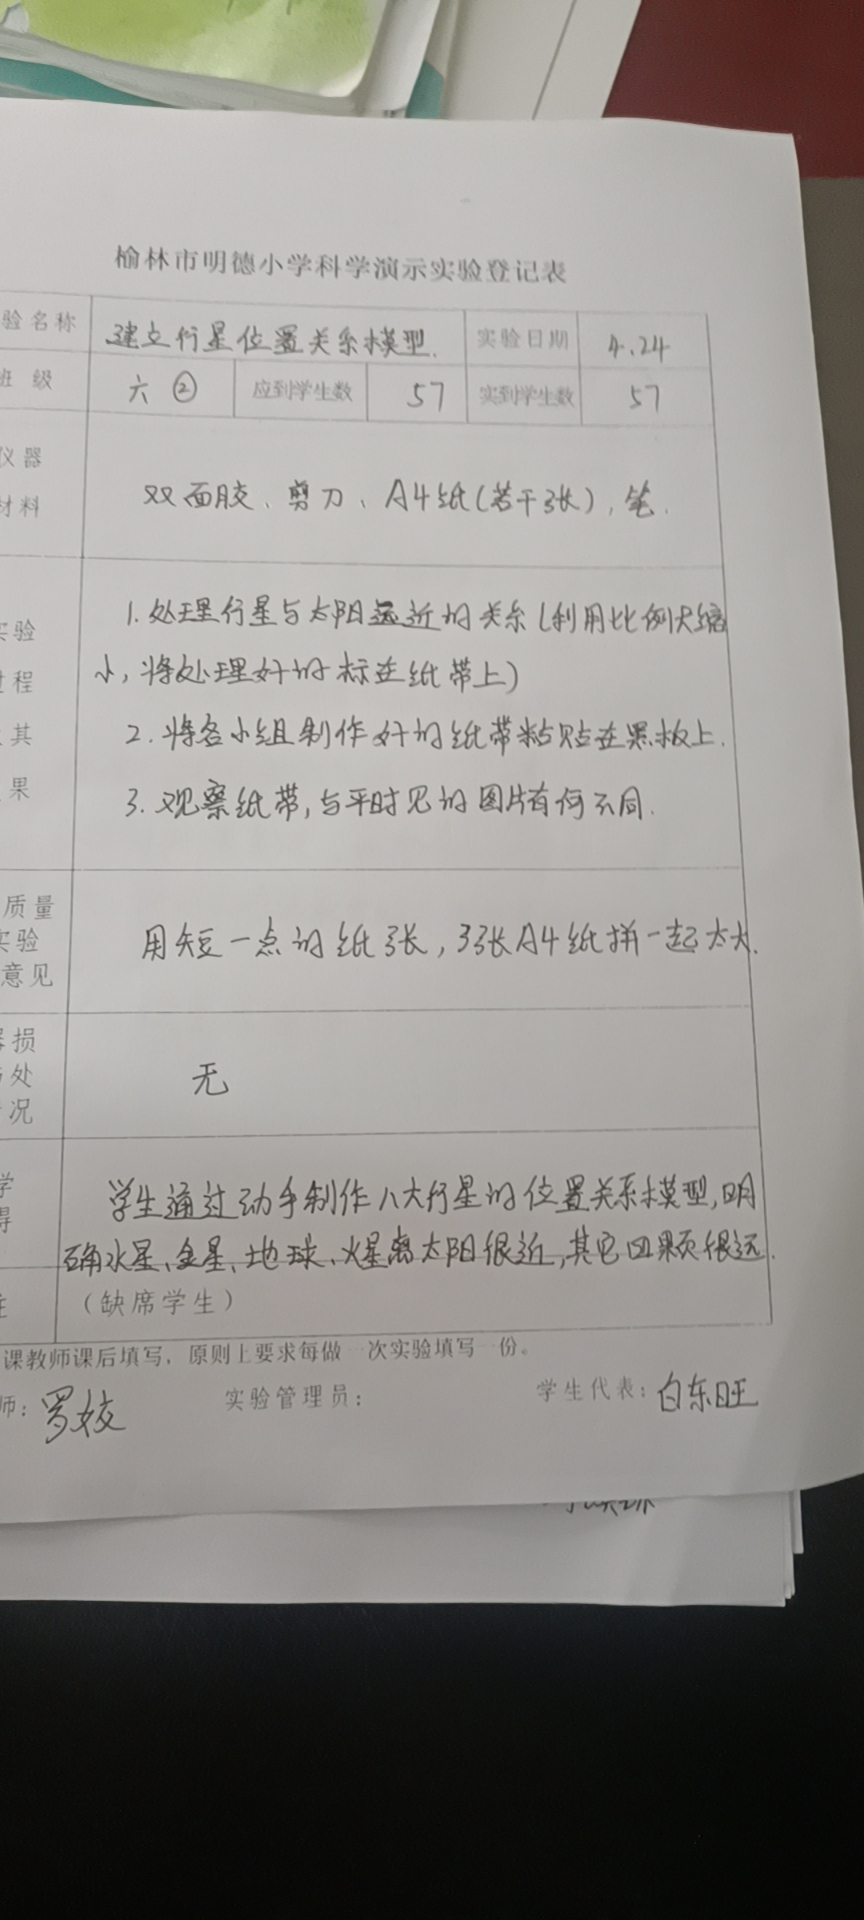 榆林市明德小学科学演示实验登记表
验名称 建立行星位置关系模型. 实验日期 4.24
班级 六② 应到学生数 57 实到学生数 57
仪器
材料
双面胶、剪刀、A4纸(若干张),笔.
1.处理行星与太阳远近的关系(利用比例尺缩
实验
小,将处理好的标在纸带上)
过程
2.将各小组制作好的纸带粘贴在黑板上.
其
果
3.观察纸带,与平时见的图片有何不同.
质量
实验
意见
用短一点的纸张,3张A4纸拼一起太大.
损
处
况
无
学
得
学生通过动手制作八大行星的位置关系模型,明
确水星、金星、地球、火星离太阳很近,其它四颗很远.
(缺席学生)
课教师课后填写,原则上要求每做一次实验填写一份。
师:罗姣 实验管理员: 学生代表:白东旺